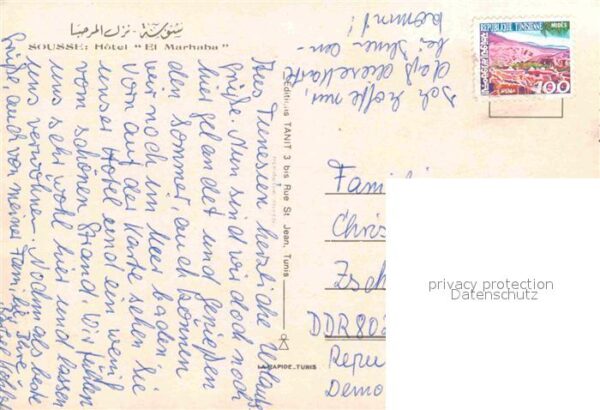 سوسة - نزل المرحبا
SOUSSE: Hôtel "El Marhaba"
Aus Tunesien herzliche Urlaubs
grüße. Nun sind wir doch noch
hier gelandet und genießen
den Sommer auch können
wir noch im Meer baden.
Vorn auf der Karte sehen Sie
unser Hotel und ein wenig
vom schönen Strand. Wir fühlen
uns sehr wohl hier und lassen
uns verwöhnen. Nochmals beste
Grüße, auch von meiner Familie Ihre
Ich hoffe nur,
daß diese Karte
bei Ihnen an-
kommt!
Editions TANIT 3 bis Rue St. Jean, Tunis
LA RAPIDE_TUNIS
REPUBLIQUE TUNISIENNE
MIDES
100
Fami
Chris
Zsch
DDR 802
Repu
Demo
privacy protection
Datenschutz